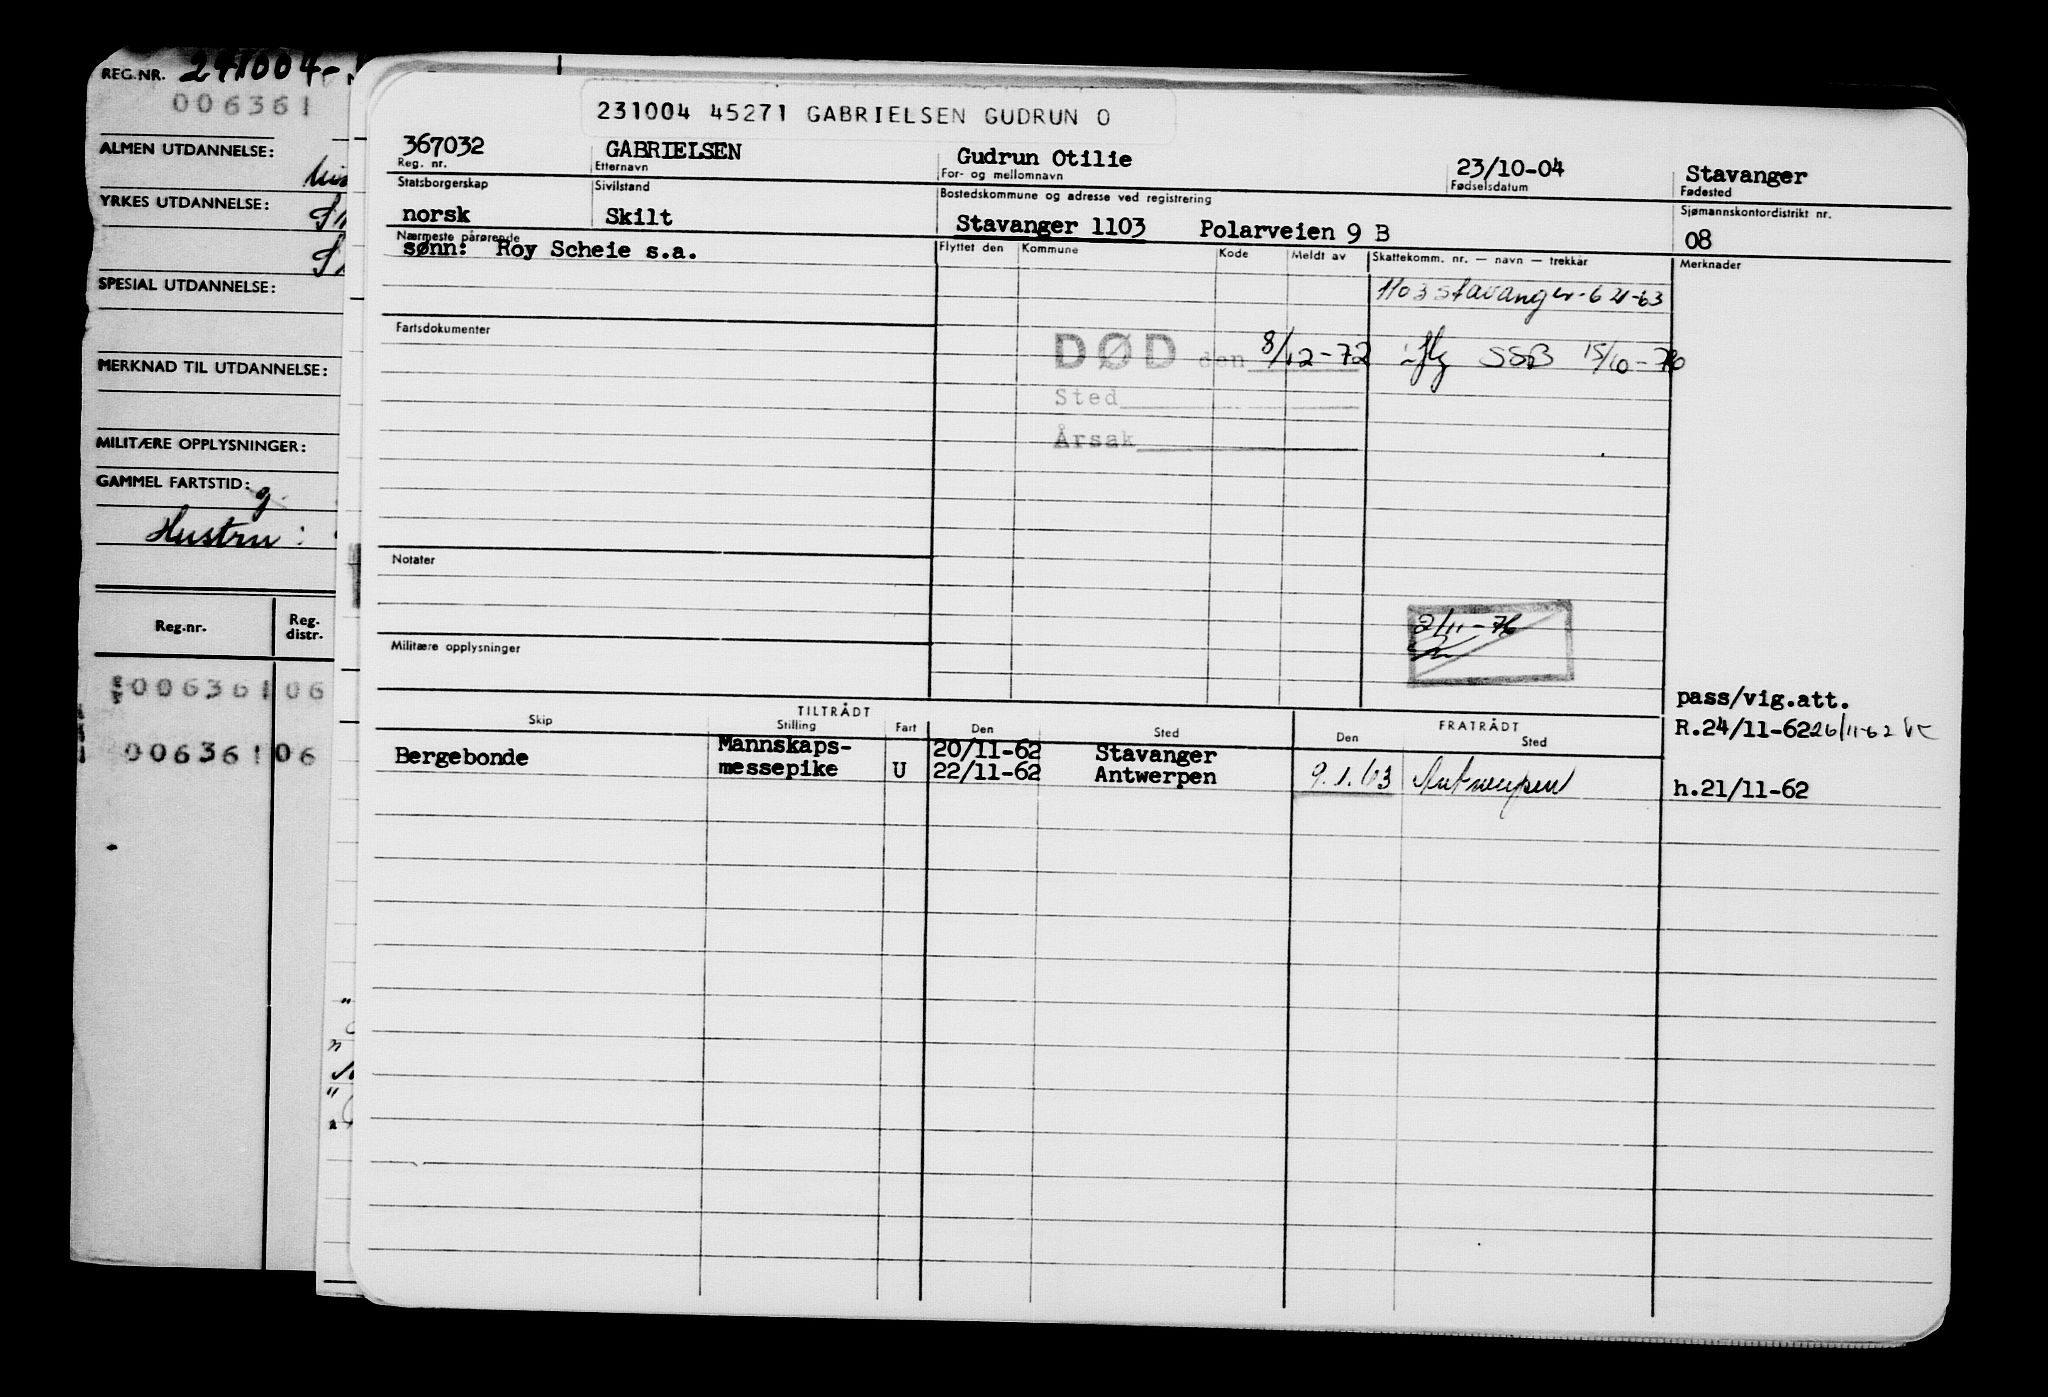 REG.NR. 241004-
006361
ALMEN UTDANNELSE:
YRKES UTDANNELSE:
SPESIAL UTDANNELSE:
MERKNAD TIL UTDANNELSE:
MILITÆRE OPPLYSNINGER:
GAMMEL FARTSTID:
Hustru:
Reg.nr. Reg. distr.
006361 06
006361 06
231004 45271 GABRIELSEN GUDRUN O
367032 GABRIELSEN Gudrun Otilie 23/10-04 Stavanger
Reg. nr. Etternavn For- og mellomnavn Fødselsdatum Fødested
Statsborgerskap Sivilstand Bostedskommune og adresse ved registrering Sjømannskontordistrikt nr.
norsk Skilt Stavanger 1103 Polarveien 9 B 08
Nærmeste pårørende Flyttet den Kommune Kode Meldt av Skattekomm. nr. — navn — trekkår Merknader
sønn: Roy Scheie s.a.
1103 Stavanger-62-63
Fartsdokumenter
DØD den 8/12-72 iflg SSB 15/10-76
Sted
Årsak
Notater
2/11-76
Militære opplysninger
pass/vig.att.
TILTRÅDT FRATRÅDT
Skip Stilling Fart Den Sted Den Sted
R.24/11-62 26/11-62
Bergebonde Mannskaps- 20/11-62 Stavanger
messepike U 22/11-62 Antwerpen 9.1.63 Antwerpen
h.21/11-62